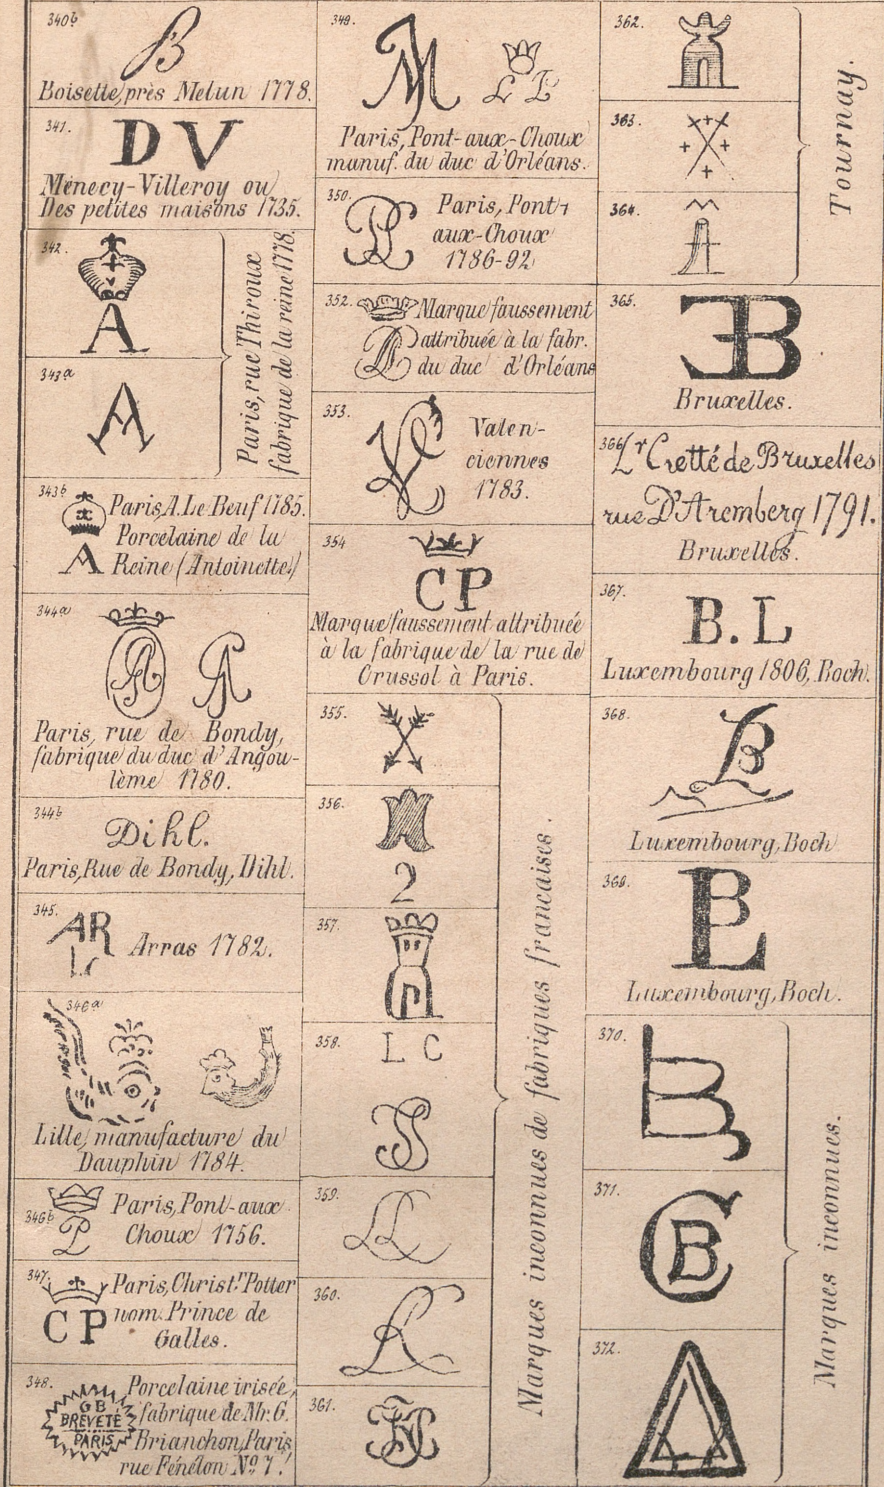 340b
B
Boisette, près Melun 1778.
341.
D V
Menecy-Villeroy ou
Des petites maisons 1735.
342.
A
343a
A
Paris, rue Thiroux
fabrique de la reine 1778.
343b
Paris, A. Le Beuf 1785.
Porcelaine de la
A Reine (Antoinette)
344a
Paris, rue de Bondy,
fabrique du duc d'Angou-
lème 1780.
344b
Dihl.
Paris, Rue de Bondy, Dihl.
345.
AR
LC
Arras 1782.
346a
Lille, manufacture du
Dauphin 1784.
346b
P
Paris, Pont-aux-
Choux 1756.
347.
C P
Paris, Christ. Potter
nom. Prince de
Galles.
348.
GB
BREVETÉ
PARIS
Porcelaine irisée,
fabrique de Mr. G.
Brianchon, Paris
rue Fénélon No. 7.
349.
M
L P
Paris, Pont-aux-Choux
manuf. du duc d'Orléans.
350.
Paris, Pont-
aux-Choux
1786-92
352.
Marque faussement
attribuée à la fabr.
du duc d'Orléans
353.
Valen-
ciennes
1783.
354
C P
Marque faussement attribuée
à la fabrique de la rue de
Crussol à Paris.
355.
356.
2
357.
358.
L C
359.
360.
361.
Marques inconnues de fabriques francaises.
362.
363.
364.
Tournay.
365.
B
Bruxelles.
366
Lr Cretté de Bruxelles
rue D'Aremberg 1791.
Bruxelles.
367.
B. L
Luxembourg 1806, Boch.
368.
Luxembourg, Boch
369.
Luxembourg, Boch.
370.
371.
C B
372.
Marques inconnues.